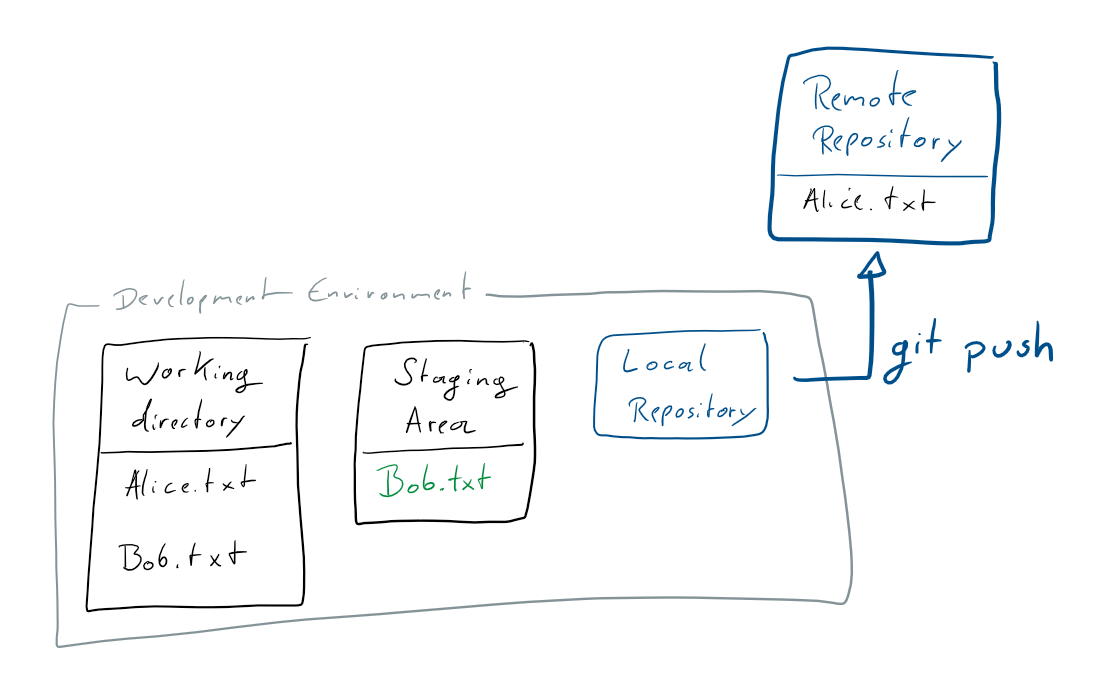 Remote
Repository
Alice.txt
Development Environment
git push
Working
directory
Alice.txt
Bob.txt
Staging
Area
Bob.txt
Local
Repository